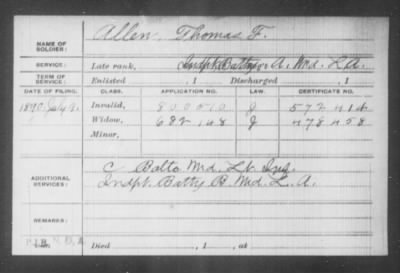 Allen, Thomas F.
NAME OF SOLDIER:
SERVICE: Late rank, Indpt. Batty A, Md. L.A.
TERM OF SERVICE: Enlisted , 1 Discharged , 1
DATE OF FILING. CLASS. APPLICATION NO. LAW. CERTIFICATE NO.
1890 July 9. Invalid, 800510 J 572414
Widow, 682148 J 478458
Minor,
C Balto Md. Lt. Inf.
ADDITIONAL SERVICES: Indpt. Batty B Md. L. A.
REMARKS:
Died , 1 , at